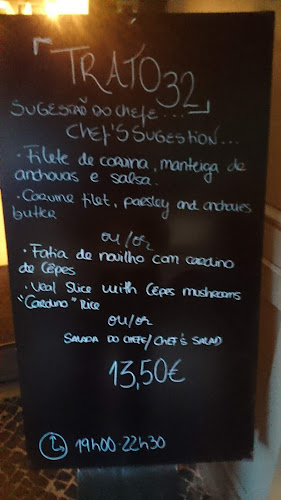 TRATO 32
SUGESTÃO DO CHEFE...
CHEF'S SUGESTION...
• Filete de corvina, manteiga de
anchovas e salsa.
• Corvine filet, parsley and anchovies
butter
ou/or
• Fatia de novilho com carolino
de Cèpes
• Veal Slice with Cèpes mushrooms
"Carolino" Rice
ou/or
SALADA DO CHEFE/CHEF'S SALAD
13,50€
19h00-22h30